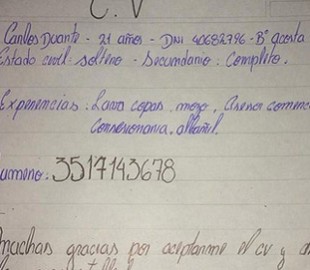 C.V
Carlos Duarte - 21 años - DNI 40682796 - Bº acosta
Estado civil: soltero - Secundario: Completo.
Experiencias: Lava copas, mozo, Asesor comerc
concesionaria, albañil.
numero: 3517143678
muchas gracias por aceptarme el cv y